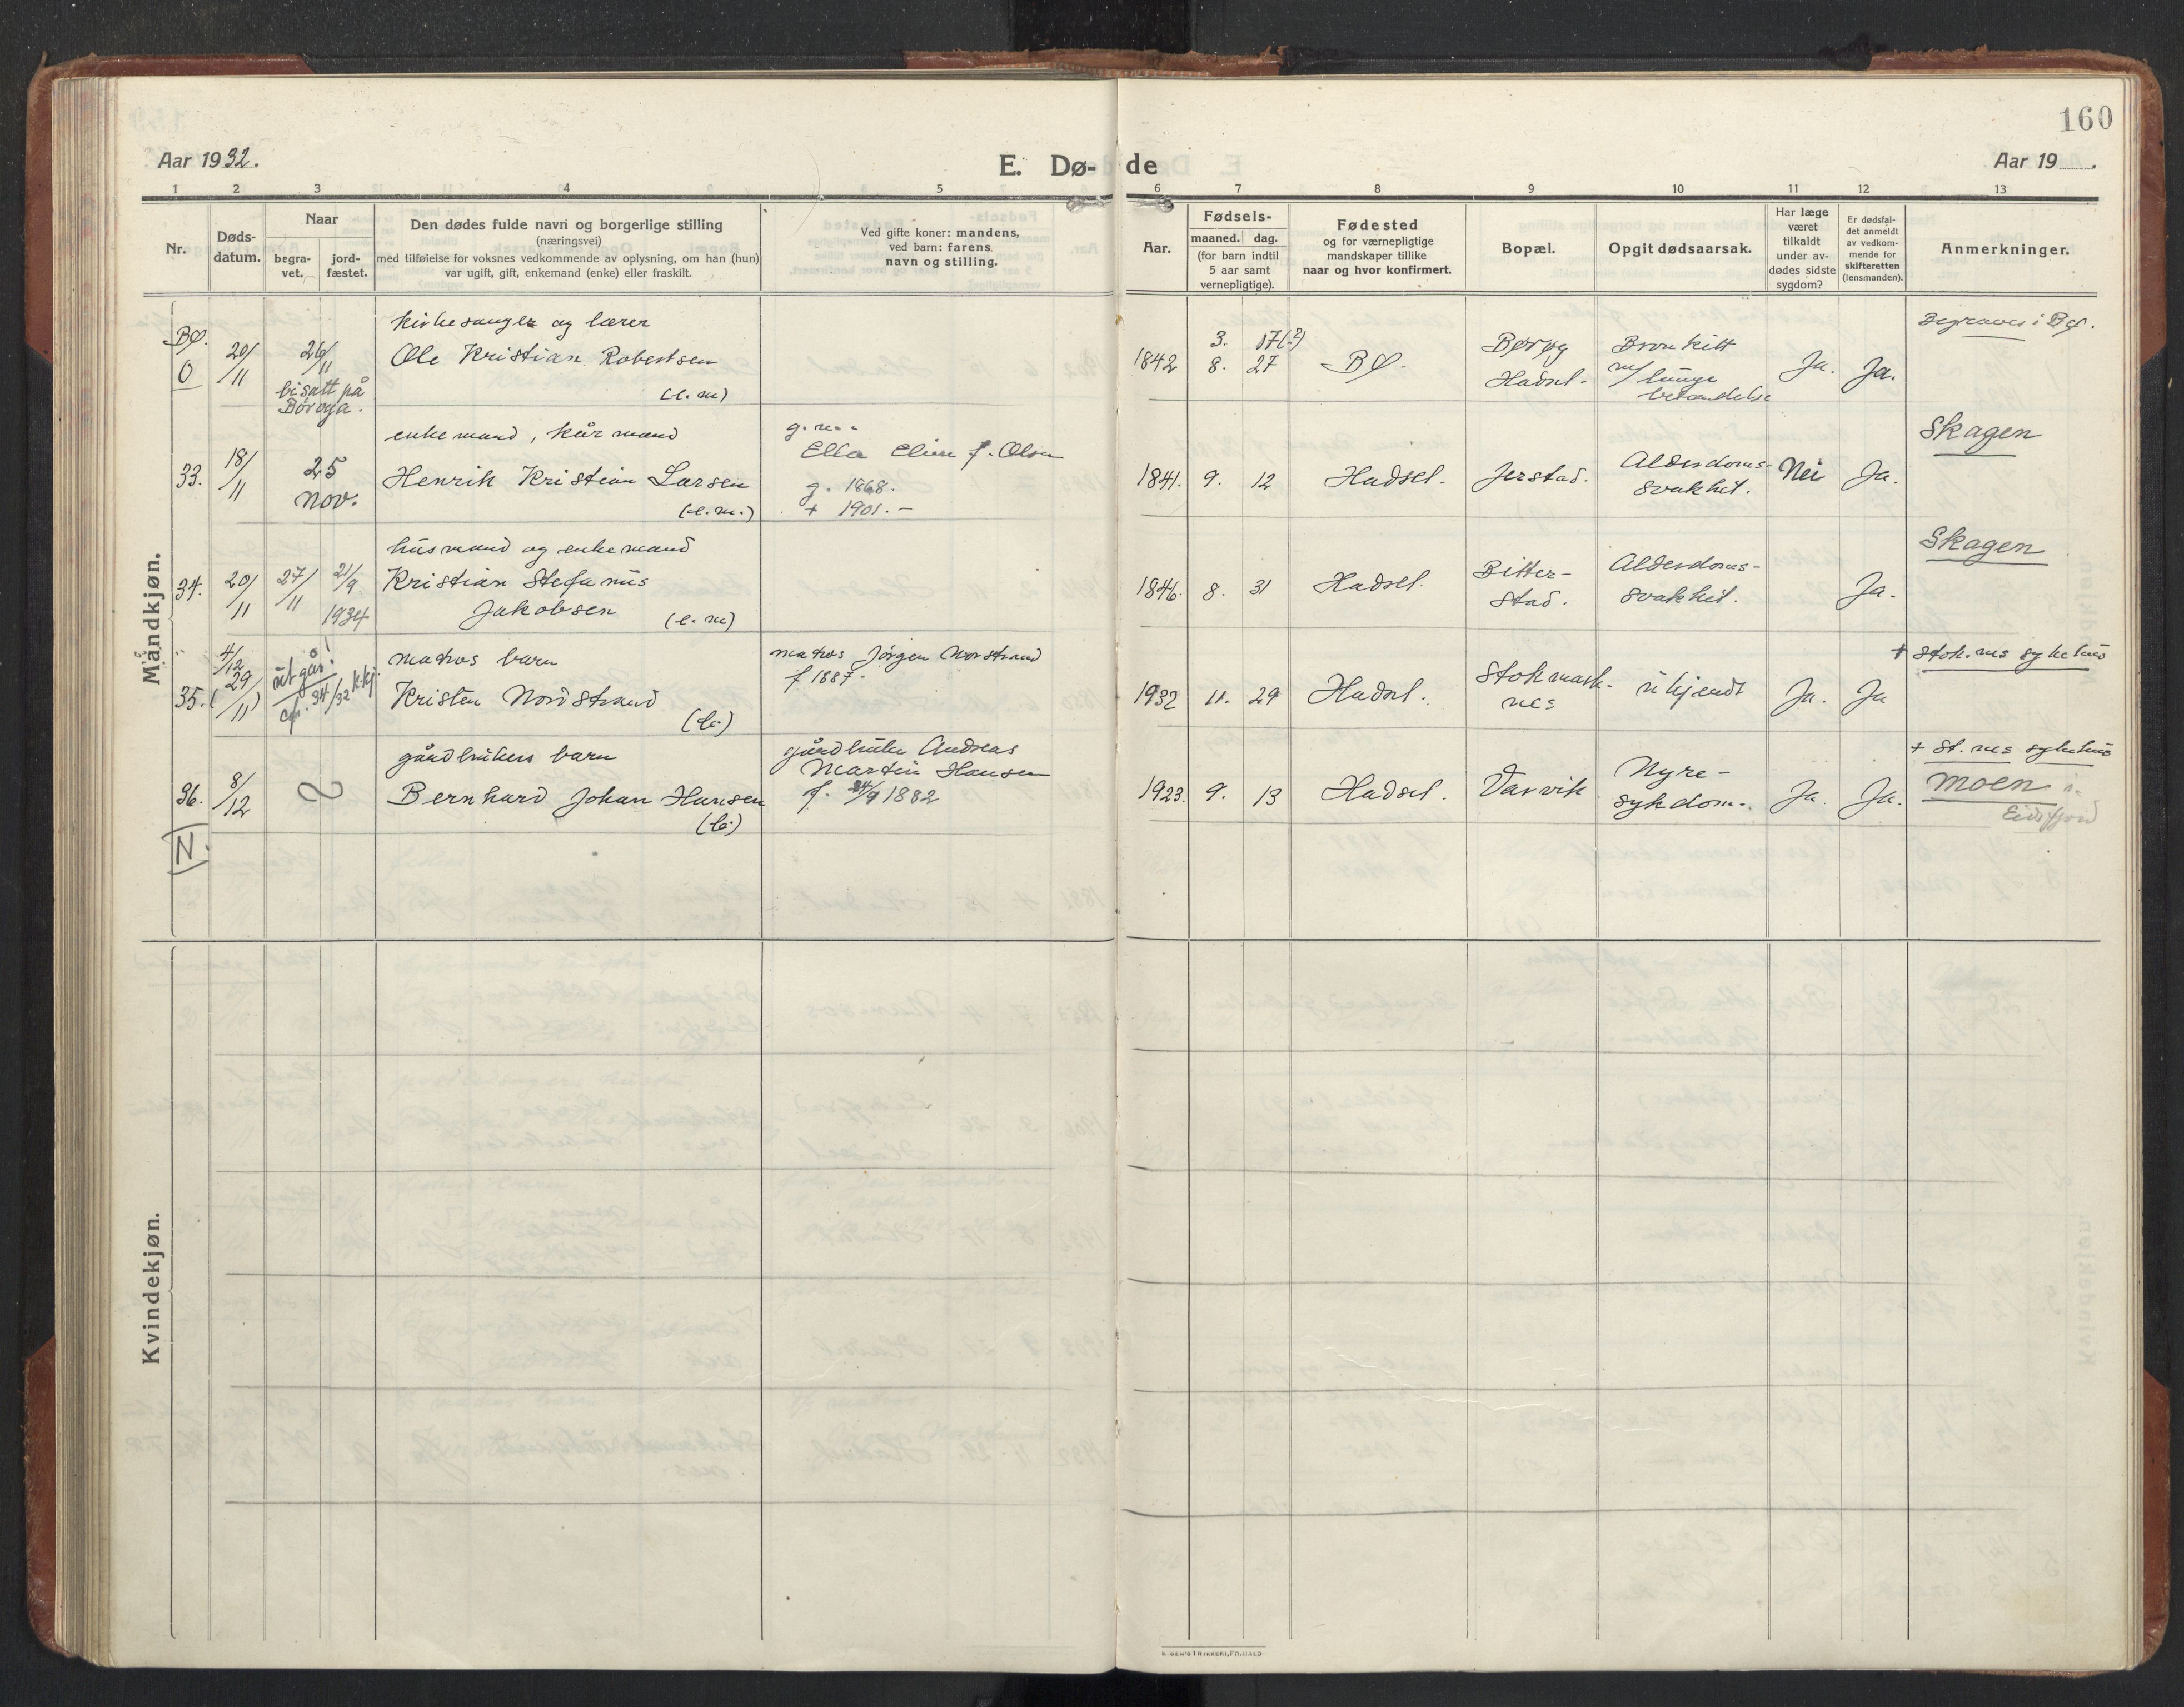 160
Aar 1932.
E. Dø-
de
Aar 19 .
1 2 3 4 5 6 7 8 9 10 11 12 13
Nr.
Døds-
datum.
Naar
begra-
vet.
jord-
fæstet.
Den dødes fulde navn og borgerlige stilling
(næringsvei)
med tilføielse for voksnes vedkommende av oplysning, om han (hun)
var ugift, gift, enkemand (enke) eller fraskilt.
Ved gifte koner: mandens,
ved barn: farens
navn og stilling.
Aar.
Fødsels-
maaned. dag.
(for barn indtil
5 aar samt
vernepligtige).
Fødested
og for værnepligtige
mandskaper tillike
naar og hvor konfirmert.
Bopæl.
Opgit dødsaarsak.
Har læge
været
tilkaldt
under av-
dødes sidste
sygdom?
Er dødsfal-
det anmeldt
av vedkom-
mende for
skifteretten
(lensmanden).
Anmerkninger.
Mandkjøn.
BØ.
0
20/11
26/11
bisatt på
Børøya.
kirkesanger og lærer
Ole Kristian Robertsen
(e. m)
1842
3. 17(?)
8. 27
BØ.
Børøy
Hadsel.
Bronkitt
m/ lunge
betændelse
Ja.
Ja.
Begraves i Bø.
33.
18/11
25
Nov.
enkemand, kårmand
Henrik Kristian Larsen
(e. m.)
g. m.
Ella Eline f. Olsen
g. 1868.
+ 1901. –
1841. 9. 12
Hadsel.
Jerstad.
Alderdoms-
svakhet.
Nei
Ja.
Skagen
34.
20/11
27/11
21/9
1934
husmand og enkemand
Kristian Stefanus
Jakobsen
(e. m)
1846. 8. 31
Hadsel.
Bitter-
stad.
Alderdoms-
svakhet.
Ja.
Skagen
35.
4/12
(29/11)
utgår!
cfr. 34/32 k.kj.
matros barn
Kristen Nordstrand
(b.)
matros Jörgen Nordstrand
f 1887.
1932 11. 29
Hadsel.
Stokmark-
nes
ukjendt
Ja.
Ja
+ Stok.nes sykehus
36.
8/12
gårdbrukers barn
Bernhard Johan Hansen
(b.)
gårdbruker Andreas
Martin Hansen
f. 24/9 1882
1923. 9. 13
Hadsel.
Varvik
Nyre-
sykdom.
Ja.
Ja.
+ St. nes sykehus
Moen i
Eidsfjord
N.
Kvindekjøn.